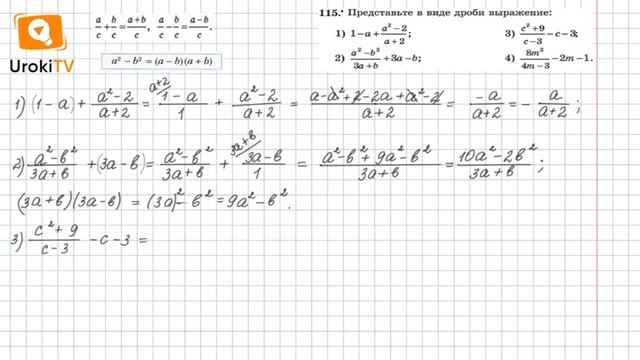 UrokiTV
a/c + b/c = (a+b)/c, a/c - b/c = (a-b)/c.
a² - b² = (a-b)(a+b)
115.• Представьте в виде дроби выражение:
1) 1-a+(a²-2)/(a+2); 3) (c²+9)/(c-3)-c-3;
2) (a²-b²)/(3a+b)+3a-b; 4) 8m²/(4m-3)-2m-1.
1) (1-a)+(a²-2)/(a+2) = a+2/ (1-a)/1 + (a²-2)/(a+2) = (a-a²+2-2a+a²-2)/(a+2) = -a/(a+2) = - a/(a+2);
2) (a²-b²)/(3a+b) + (3a-b) = (a²-b²)/(3a+b) + 3a+b/ (3a-b)/1 = (a²-b²+9a²-b²)/(3a+b) = (10a²-2b²)/(3a+b);
(3a+b)(3a-b) = (3a)²-b² = 9a²-b².
3) (c²+9)/(c-3) -c-3 =